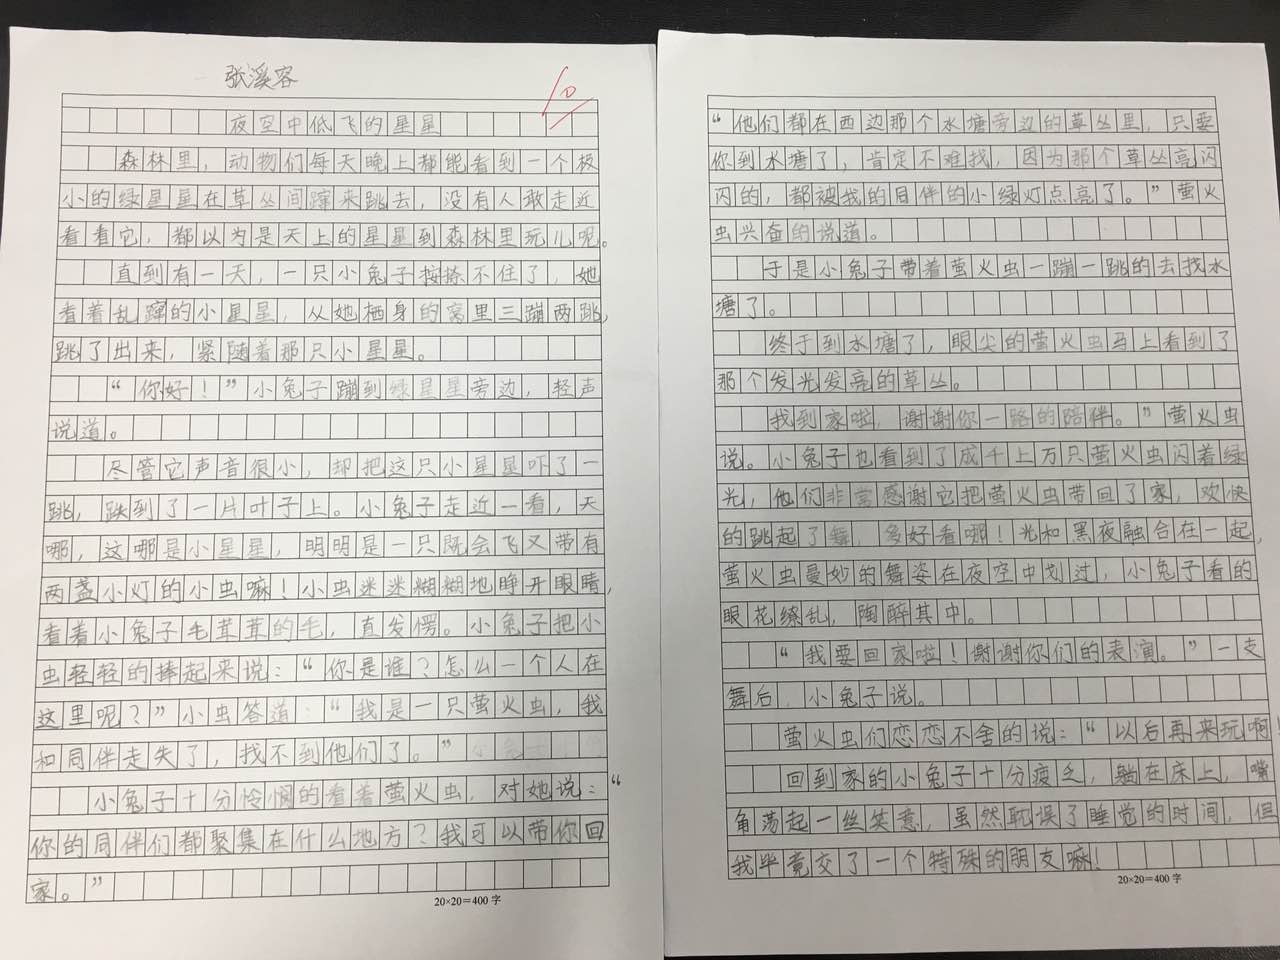 张溪容
10
夜空中低飞的星星
森林里，动物们每天晚上都能看到一个极
小的绿星星在草丛间蹿来跳去，没有人敢走近
看看它，都以为是天上的星星到森林里玩儿呢。
直到有一天，一只小兔子按捺不住了，她
看着乱蹿的小星星，从她栖身的窝里三蹦两跳，
跳了出来，紧随着那只小星星。
“你好！”小兔子蹦到绿星星旁边，轻声
说道。
尽管它声音很小，却把这只小星星吓了一
跳，跌到了一片叶子上。小兔子走近一看，天
哪，这哪是小星星，明明是一只既会飞又带有
两盏小灯的小虫嘛！小虫迷迷糊糊地睁开眼睛，
看着小兔子毛茸茸的毛，直发愣。小兔子把小
虫轻轻的捧起来说：“你是谁？怎么一个人在
这里呢？”小虫答道：“我是一只萤火虫，我
和同伴走失了，找不到他们了。”
小兔子十分怜悯的看着萤火虫，对她说：“
你的同伴们都聚集在什么地方？我可以带你回
家。”
20×20＝400字
“他们都在西边那个水塘旁边的草丛里，只要
你到水塘了，肯定不难找，因为那个草丛亮闪
闪的，都被我的同伴的小绿灯点亮了。”萤火
虫兴奋的说道。
于是小兔子带着萤火虫一蹦一跳的去找水
塘了。
终于到水塘了，眼尖的萤火虫马上看到了
那个发光发亮的草丛。
找到家啦，谢谢你一路的陪伴。”萤火虫
说。小兔子也看到了成千上万只萤火虫闪着绿
光，他们非常感谢它把萤火虫带回了家，欢快
的跳起了舞，多好看哪！光和黑夜融合在一起，
萤火虫曼妙的舞姿在夜空中划过，小兔子看的
眼花缭乱，陶醉其中。
“我要回家啦！谢谢你们的表演。”一支
舞后，小兔子说。
萤火虫们恋恋不舍的说：“以后再来玩啊！
回到家的小兔子十分疲乏，躺在床上，嘴
角荡起一丝笑意，虽然耽误了睡觉的时间，但
我毕竟交了一个特殊的朋友嘛！
20×20＝400字